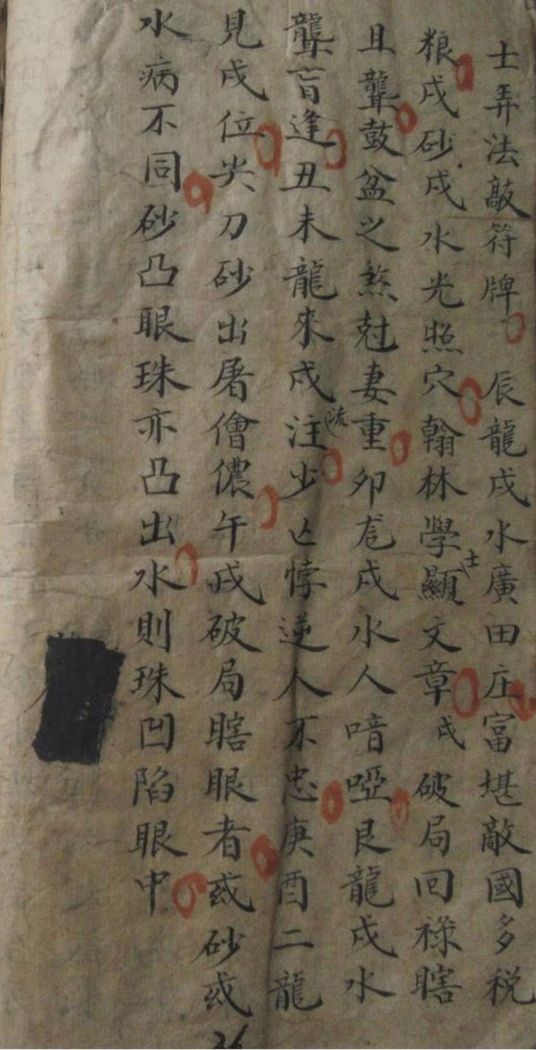 士弄法敲符牌辰龍戌水廣田庄富堪敵國多税
粮戌砂戌水光照穴翰林學士顯文章戌破局回禄瞎
且聾鼓盆之煞尅妻重卯龙戌水人喑啞艮龍戌水
聾盲逢丑未龍來戌注少亡悖逆人不忠庚酉二龍
見戌位尖刀砂出屠儈儂午戌破局瞎眼者或砂或
水病不同砂凸眼珠亦凸出水則珠凹陷眼中